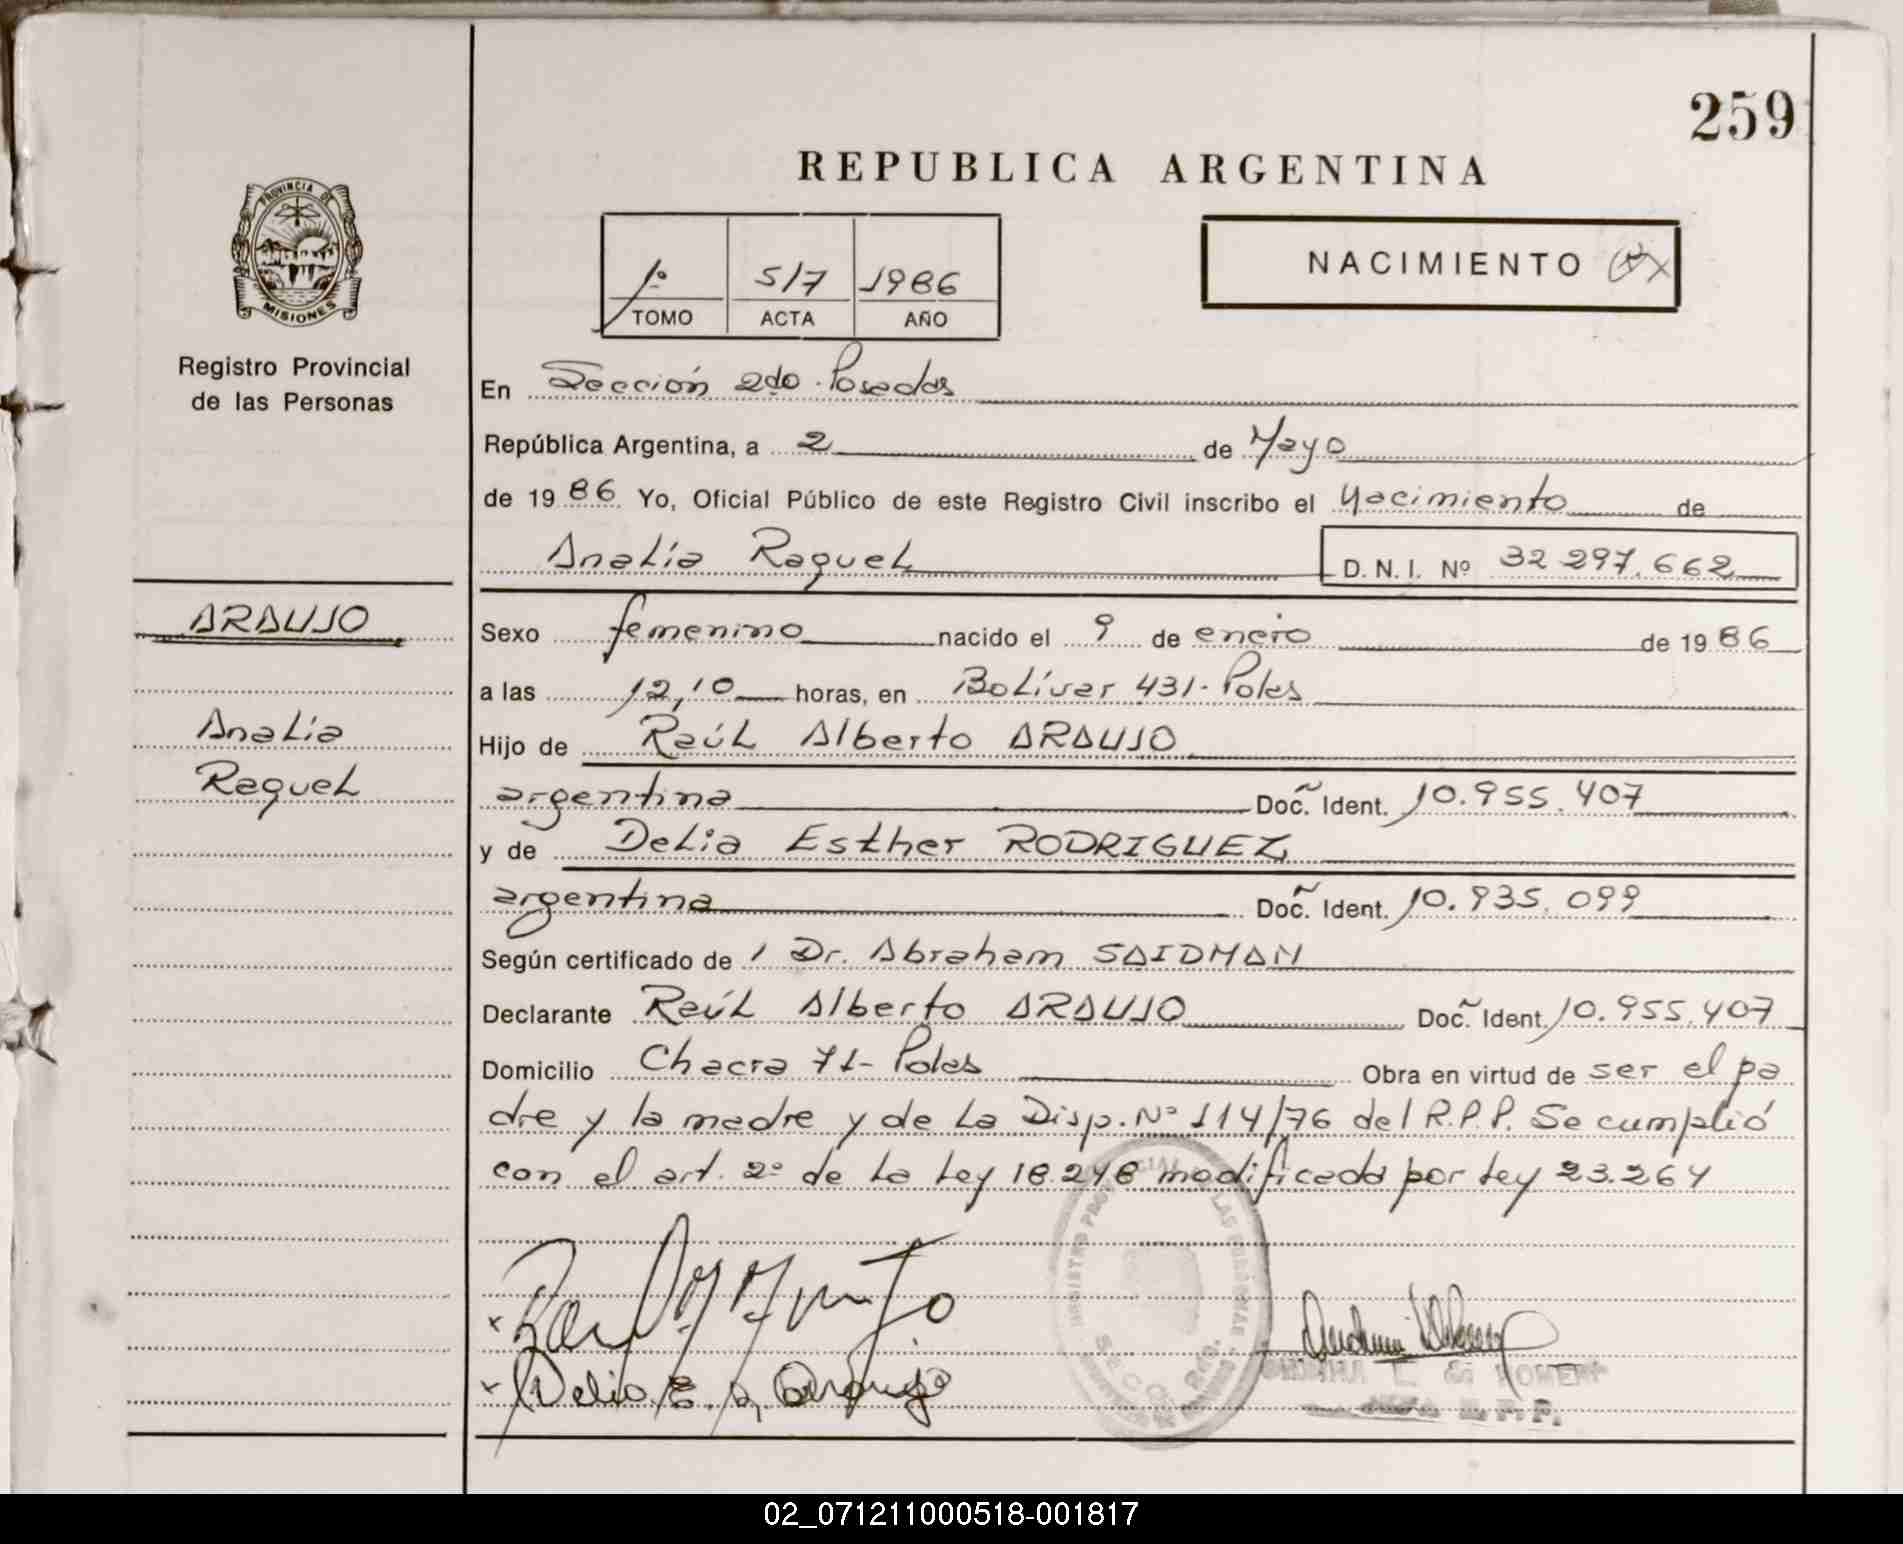 259
REPUBLICA ARGENTINA
PROVINCIA DE
MISIONES
Registro Provincial
de las Personas
1º 517 1986
TOMO ACTA AÑO
NACIMIENTO
En Sección 2do. Posadas
República Argentina, a 2 de Mayo
de 1986 Yo, Oficial Público de este Registro Civil inscribo el Nacimiento de
Analía Raquel D. N. I. Nº 32 297.662
ARAUJO
Analía
Raquel
Sexo femenino nacido el 9 de enero de 1986
a las 12,10 horas, en Bolívar 431- Pdas
Hijo de Raúl Alberto ARAUJO
argentina Doc. Ident. 10.955.407
y de Delia Esther RODRIGUEZ
argentina Doc. Ident. 10.935.099
Según certificado de / Dr. Abraham SAIDMAN
Declarante Raúl Alberto ARAUJO Doc. Ident. 10.955.407
Domicilio Chacra 71- Pdas Obra en virtud de ser el pa
dre y la madre y de la Disp. Nº 114/76 del R.P.P. Se cumplió
con el art. 2º de la Ley 18.248 modificada por Ley 23.264
Delia E. R. Araujo
02_071211000518-001817